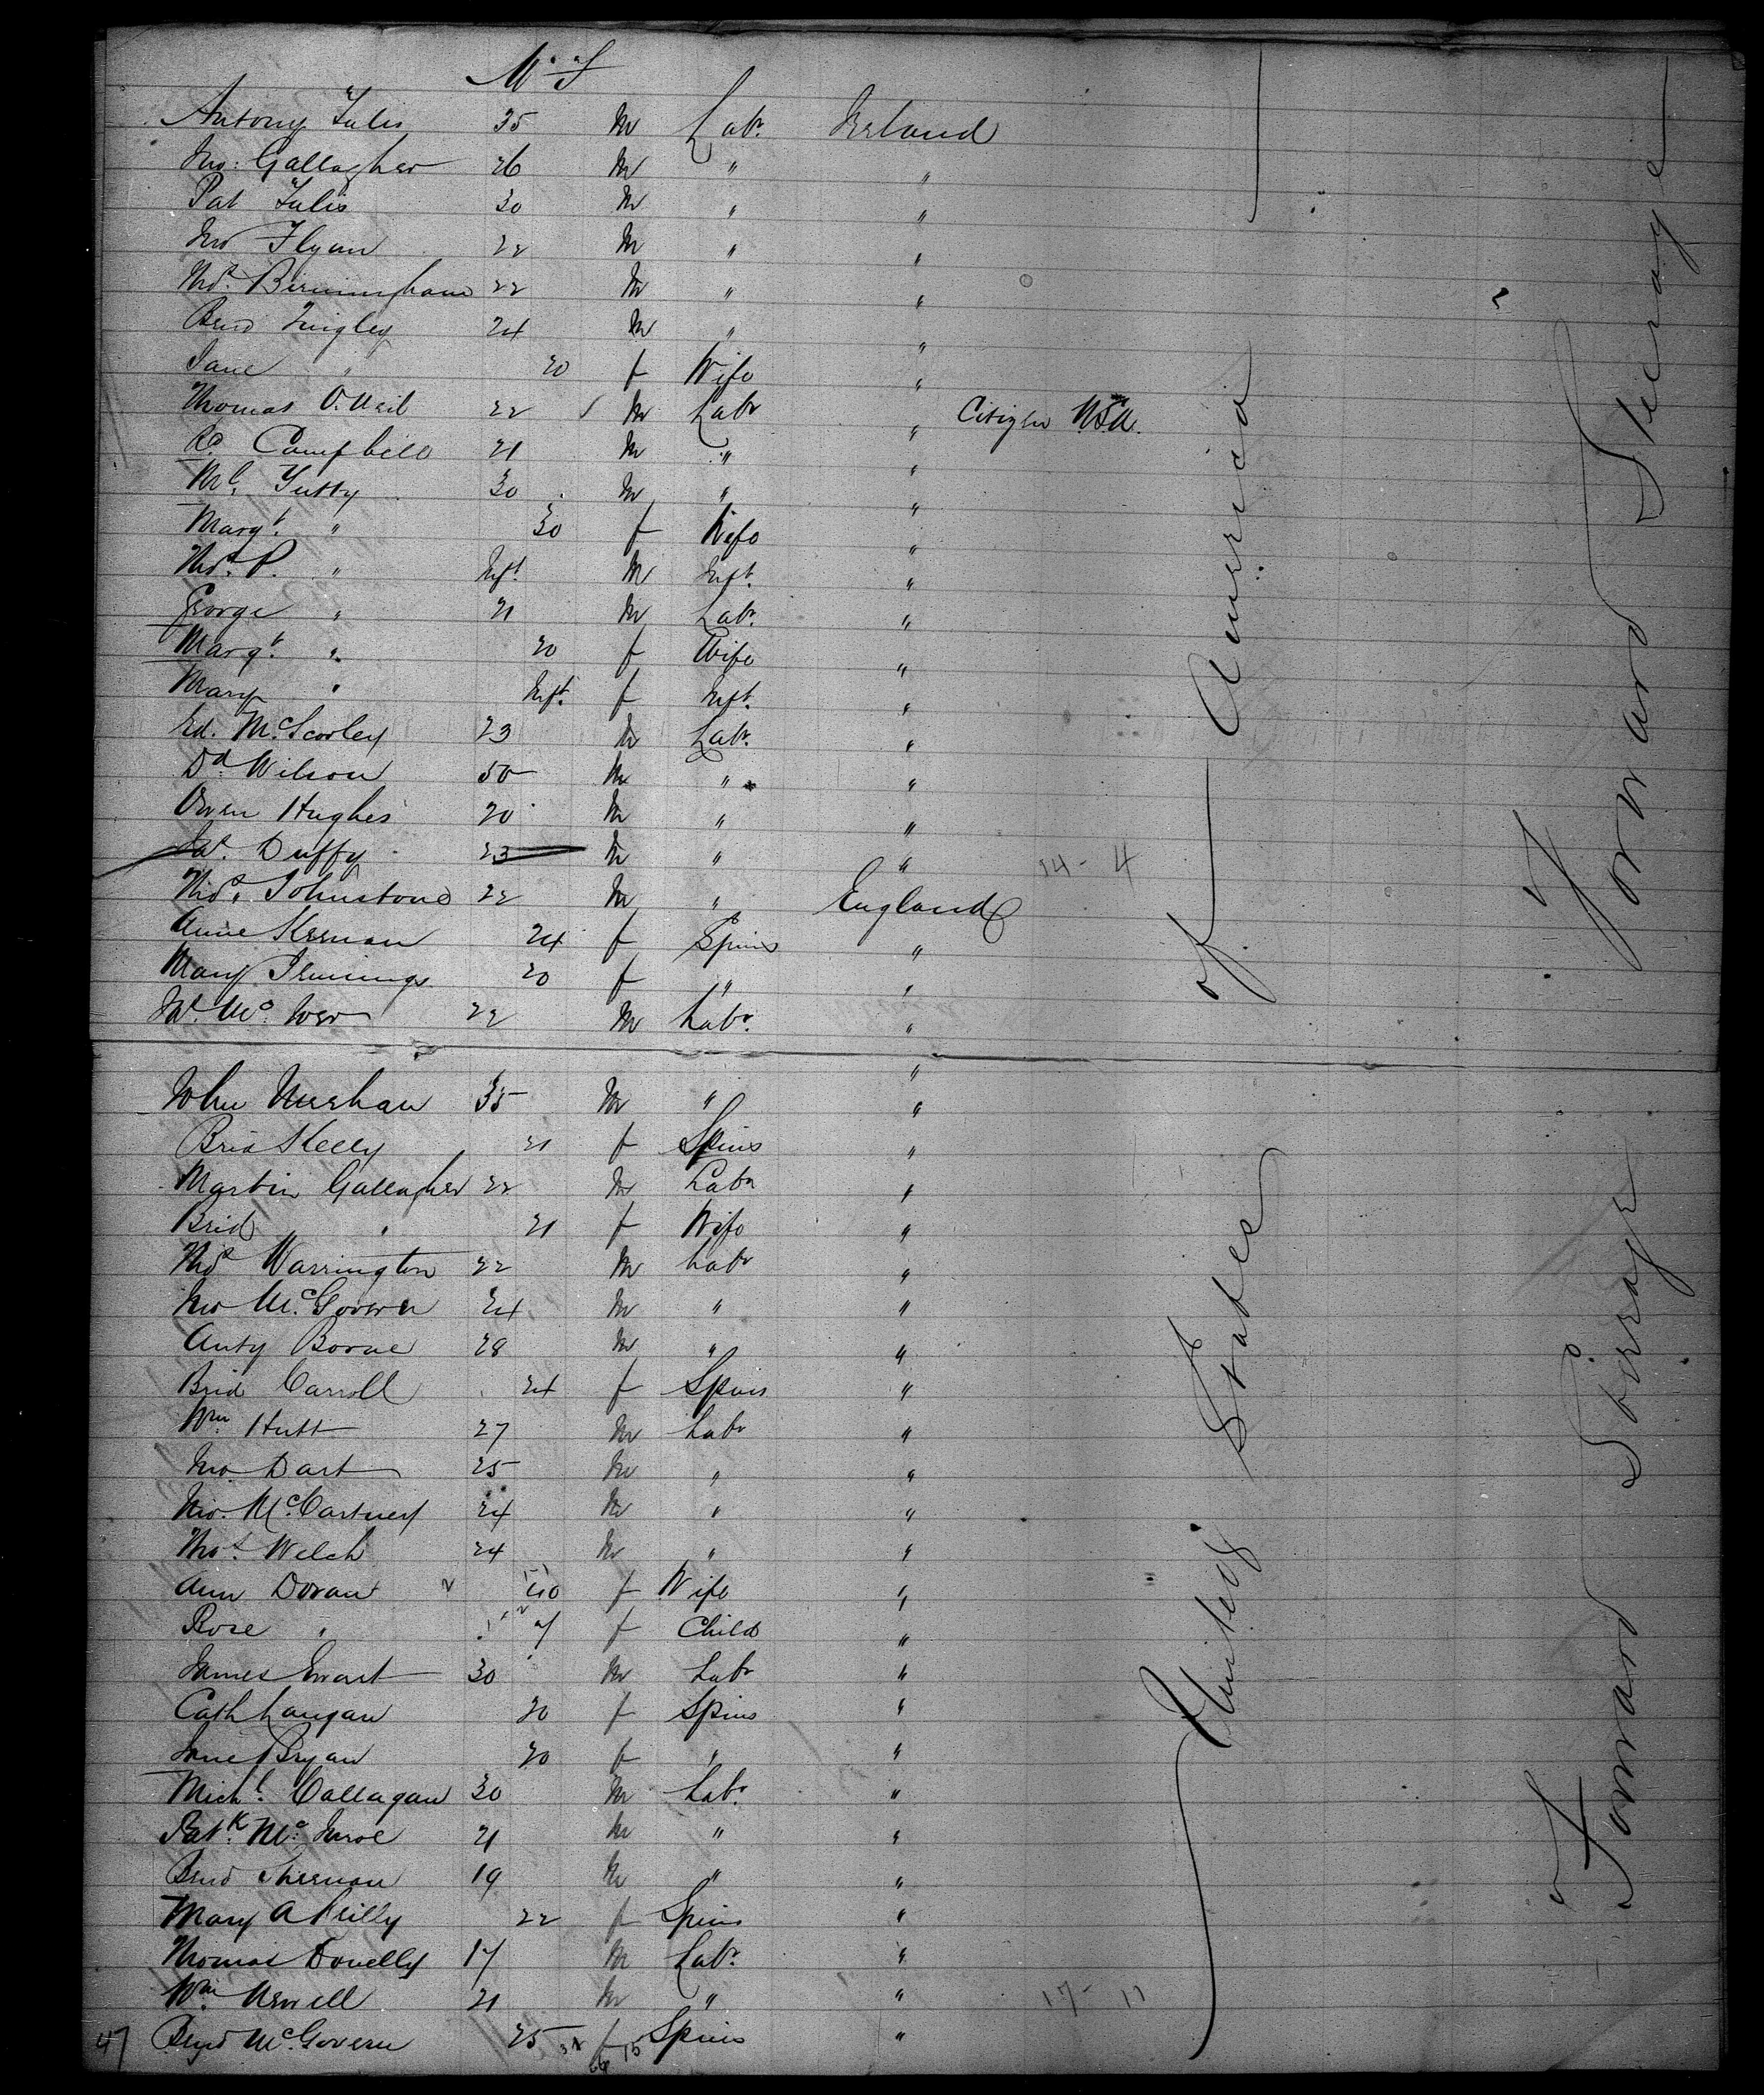 M. S
Antony Tulis 35 M Labr. Ireland
Jno: Gallagher 26 M " "
Pat Tulis 30 M " "
Jno Flynn 22 M " "
Thos. Birmingham 22 M " "
Bend 24 M " "
Jane " 20 f Wife "
Thomas O.Neil 22 M Labr " Citizen U.S.A.
Rd. Campbell 21 M " "
Ml. Tutty 30 M " "
Margt. " 30 f Wife "
Thos. P. " Inft. M Inft. "
George " 21 M Labr. "
Margt. " 20 f Wife "
Mary " Inft. f Inft. "
Ed. McScorley 23 M Labr. "
Dd Wilson 50 M " "
Owen Hughes 20 M " "
Duffy 23 M " " 14 - 4
Thos. Johnstone 22 M " England
Anne Kernan 24 f Spins "
Mary Jennings 20 f " "
22 M Labr. "
"
John Meehan 35 M " "
Brid Kelly 21 f Spins "
Martin Gallagher 22 M Labr "
Brid " 21 f Wife "
Thos Warrington 22 M Labr "
Jno McGovern 24 M " "
Anty Borne 28 M " "
Brid Carroll 24 f Spins "
Wm. Hutt 27 M Labr "
Jno. Dart 25 M " "
Jno. McCartney 24 M " "
Thos. Welch 24 M " "
Ann Doran 40 f Wife "
Rose " 7 f Child "
James Ewart 30 M Labr "
Cath Langan 20 f Spins "
Jane Bryan 20 f " "
Michl. Callagan 30 M Labr. "
Patk. Mc. 21 M " "
Bend 19 M " "
Mary A Reilly 22 f Spins "
Thomas Donelly 17 M Labr. "
Wm. Newell 21 M " " 17 - 11
47 McGovern 25 f 15 Spins "
United States of America
Forward Steerage
Forward Steerage